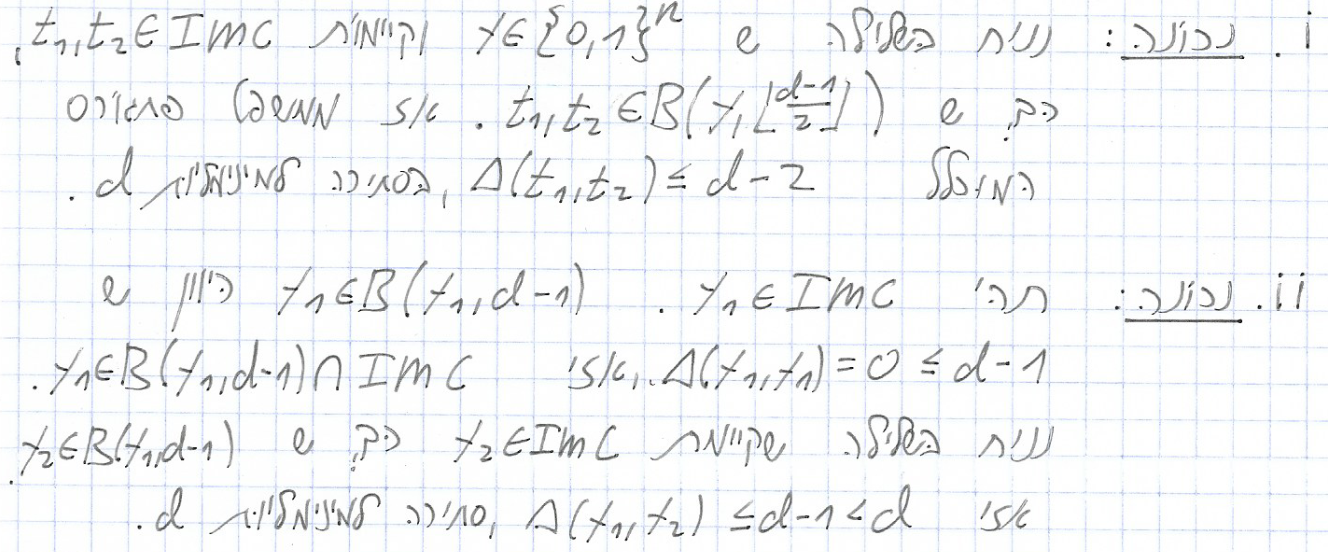 i. נכונה: נניח בשלילה ש y∈{0,1}^n וקיימות t₁,t₂∈ImC,
כך ש t₁,t₂∈B(y,⌊(d-1)/2⌋). אז ממשפט פתגורס
המוכלל Δ(t₁,t₂)≤d-2, בסתירה למינימליות d.
ii. נכונה: תהי y₁∈ImC. y₁∈B(y₁,d-1) כיוון ש
Δ(y₁,y₁)=0≤d-1, ואזי y₁∈B(y₁,d-1)∩ImC.
נניח בשלילה שקיימת y₂∈ImC כך ש y₂∈B(y₁,d-1).
אזי Δ(y₁,y₂)≤d-1<d, סתירה למינימליות d.